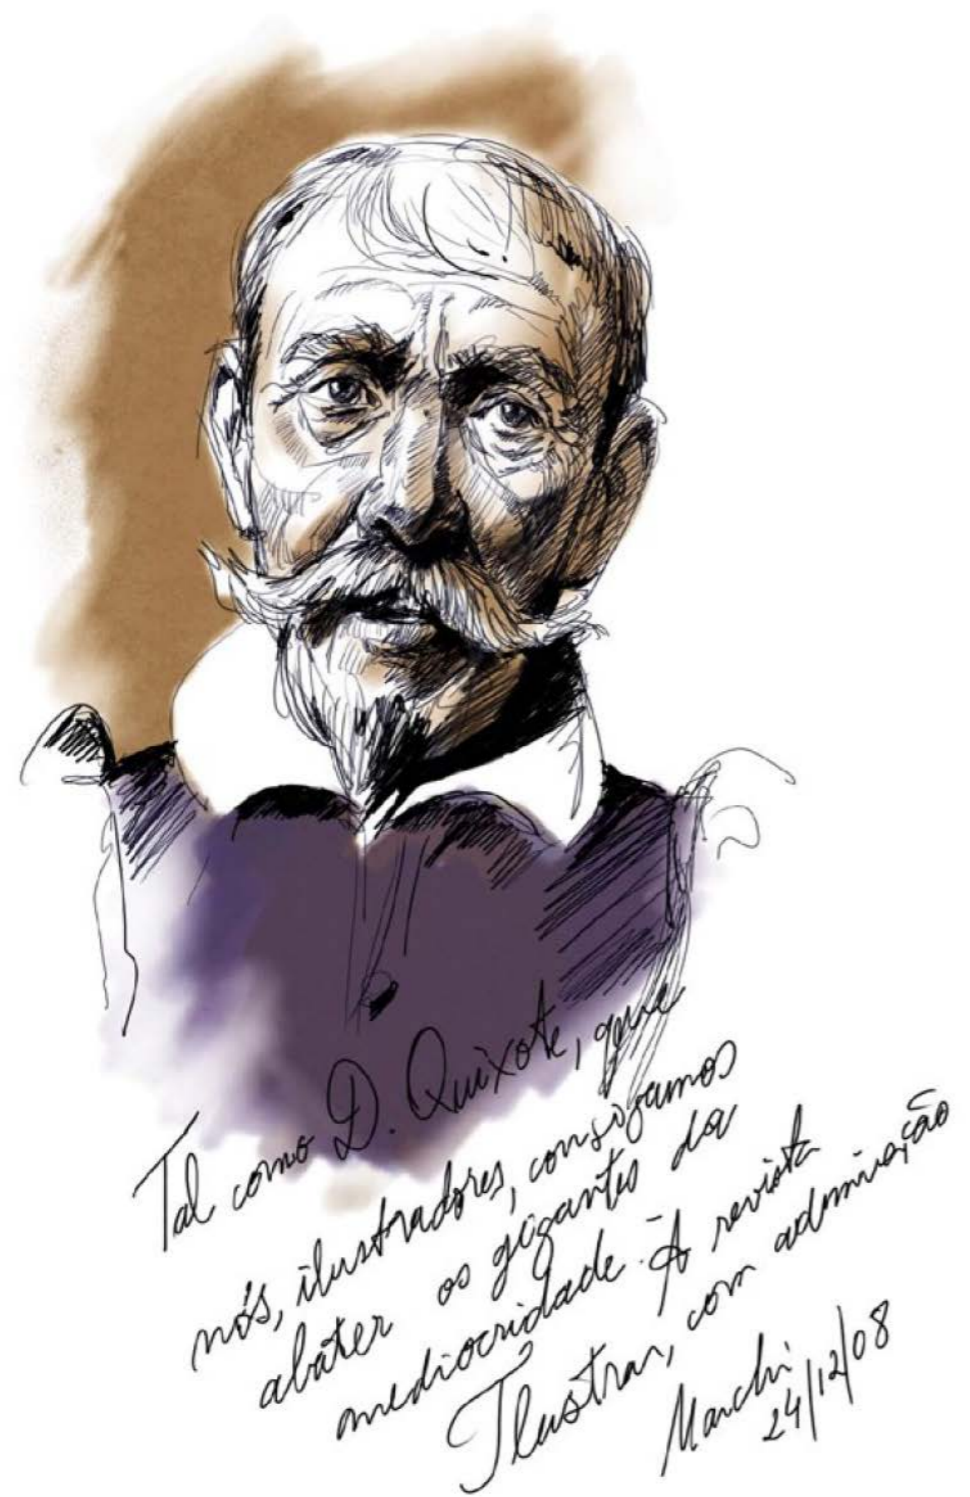 Tal como D. Quixote, que
nós, ilustradores, consigamos
abater os gigantes da
mediocridade. À revista
Ilustrar, com admiração
Marchi
24/12/08